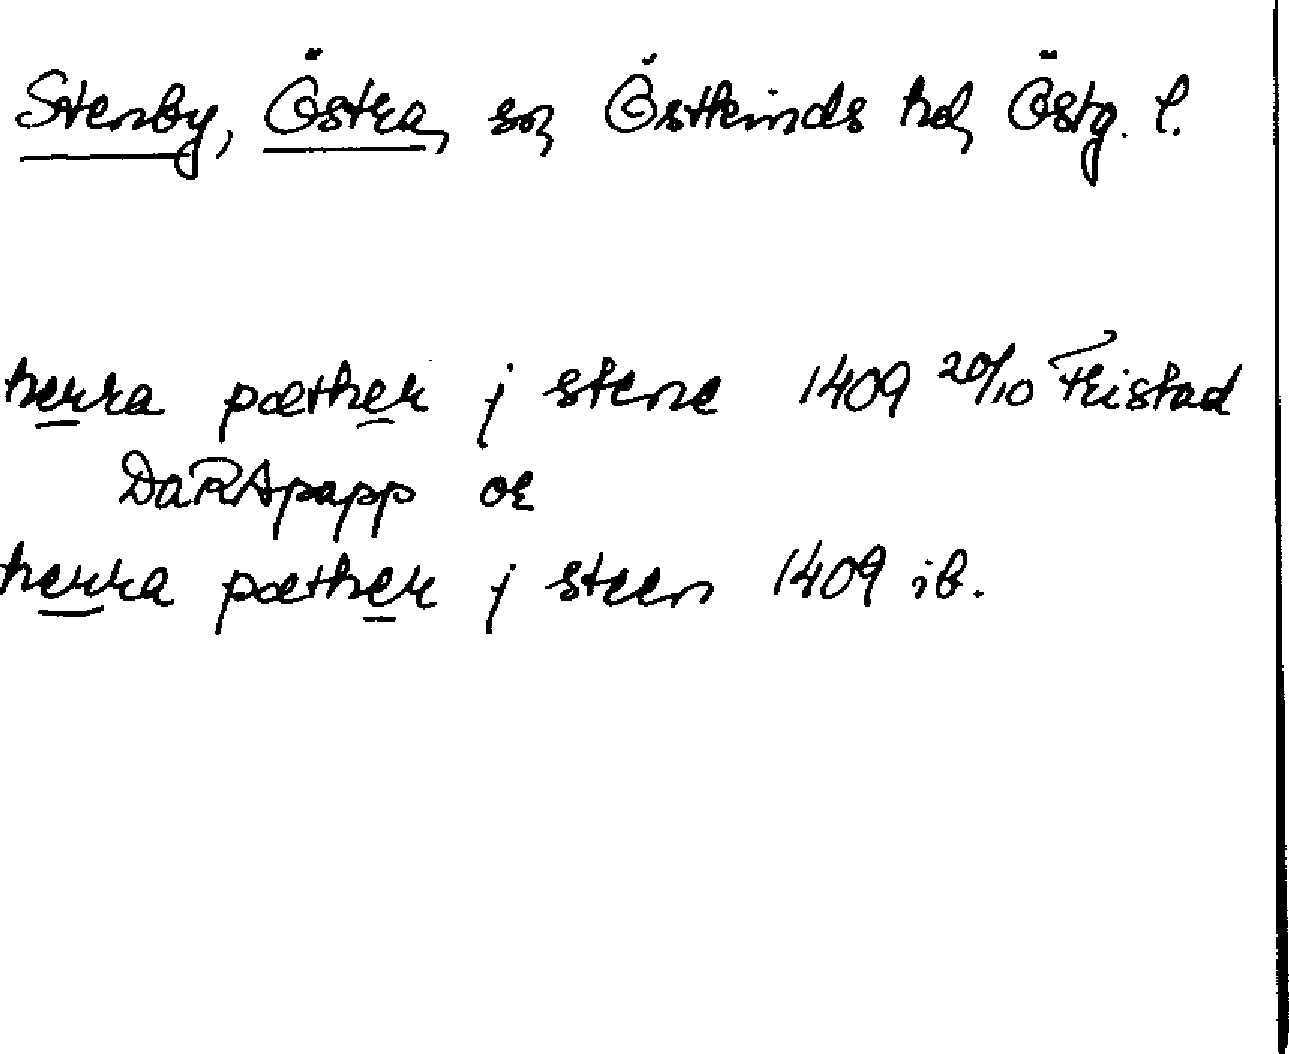 Stenby, Östra, sn, Östkinds hd, Östg. l.
herra pæther j stene 1409 20/10 Fristad
DaRApapp or
herra pæther j steen 1409 ib.